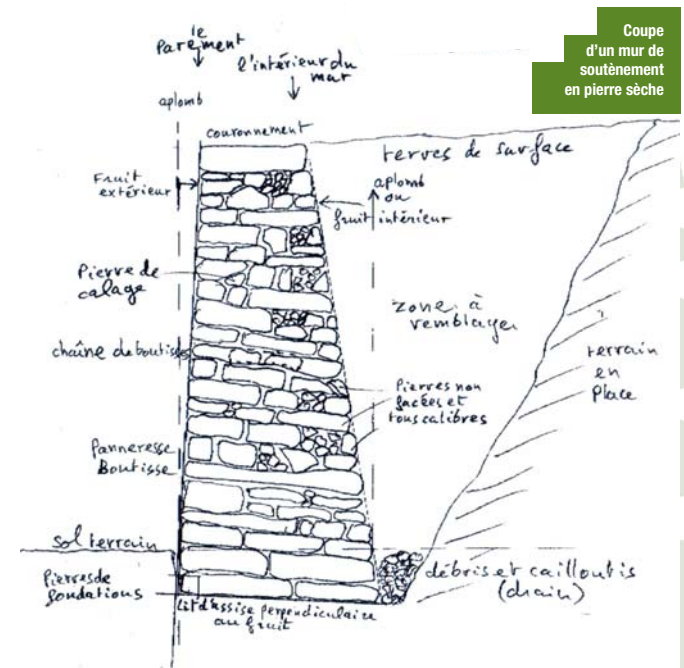 Coupe
d'un mur de
soutènement
en pierre sèche
le
Parement
l'intérieur du
mur
aplomb
couronnement
terres de surface
Fruit
extérieur
aplomb
ou
fruit intérieur
Pierre de
calage
zone à
remblayer
chaîne de boutisses
terrain
en
place
Pierres non
gacées et
tous calibres
Panneresse
Boutisse
sol terrain
Pierres de
fondations
débris et cailloutis
(drain)
Lit d'assise perpendiculaire
au fruit